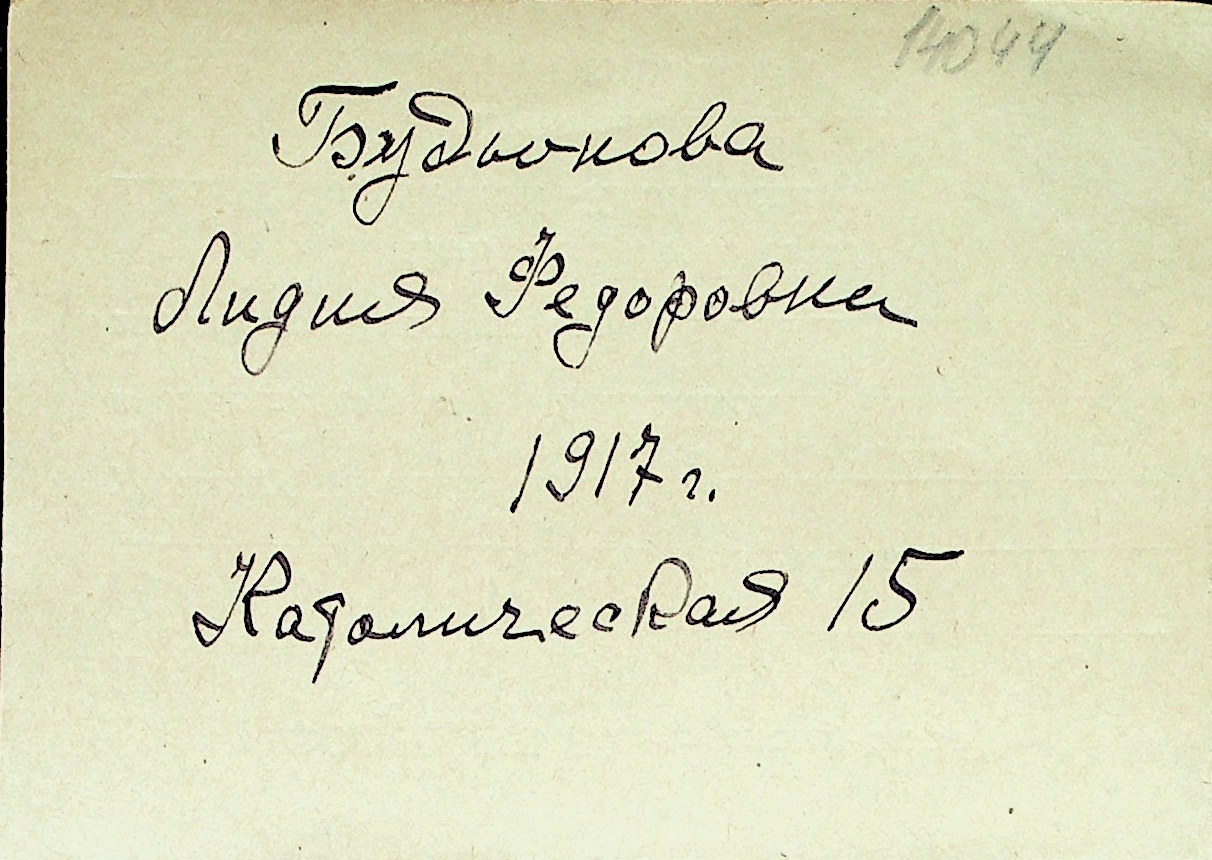 14044
Будьонова
Лидия Федоровна
1917 г.
Католическая 15